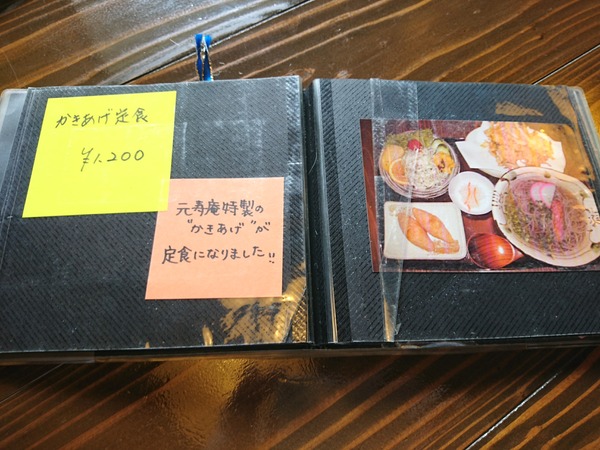 かきあげ定食
¥1,200
元寿庵特製の
"かきあげ"が
定食になりました!!